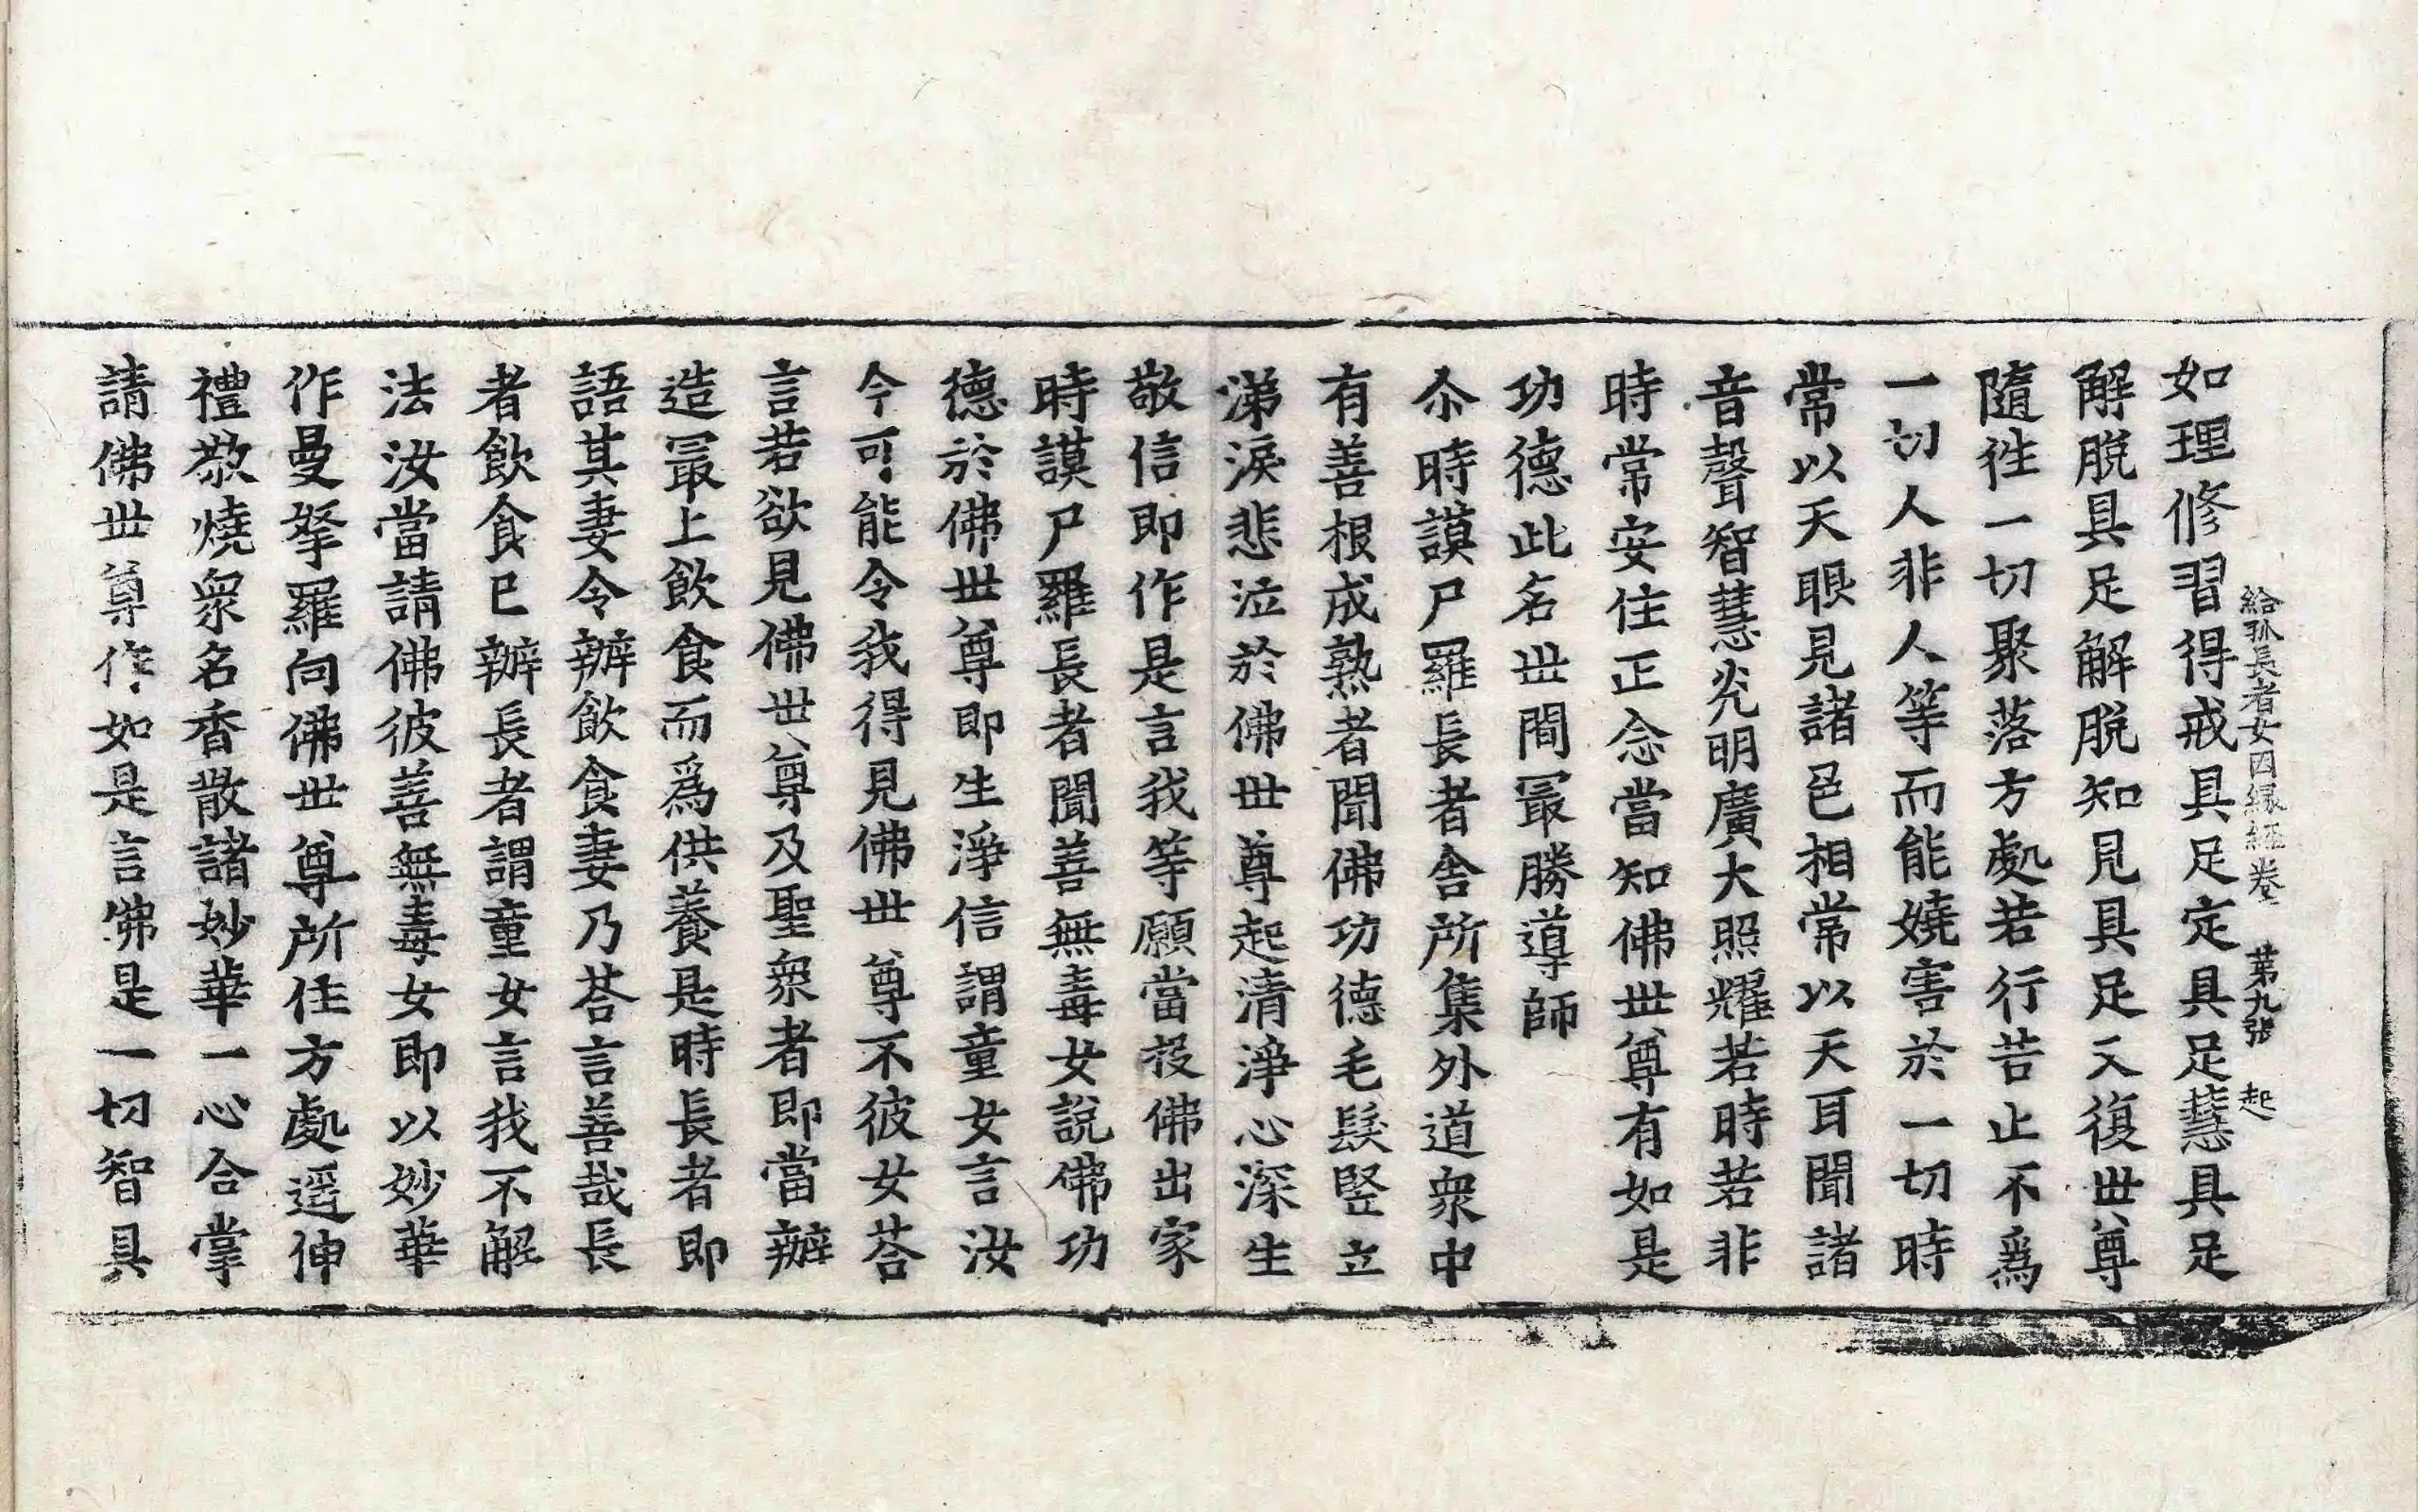 給孤長者女因緣經卷二 苐九張 起
如理修習得戒具足定具足慧具足
解脫具足解脫知見具足又復世尊
隨徃一切聚落方處若行若止不爲
一切人非人等而能嬈害於一切時
常以天眼見諸色相常以天耳聞諸
音聲智慧光明廣大照耀若時若非
時常安住正念當知佛世尊有如是
功德此名世間冣勝導師
尒時謨尸羅長者舍所集外道衆中
有善根成熟者聞佛功德毛髮竪立
涕淚悲泣於佛世尊起清淨心深生
敬信即作是言我等願當投佛出家
時謨尸羅長者聞善無毒女說佛功
德於佛世尊即生淨信謂童女言汝
今可能令我得見佛世尊不彼女荅
言若欲見佛世尊及聖衆者即當辦
造冣上飲食而爲供養是時長者即
語其妻令辦飲食妻乃荅言善哉長
者飲食已辦長者謂童女言我不解
法汝當請佛彼善無毒女即以妙華
作曼拏羅向佛世尊所住方處遥伸
禮敬燒衆名香散諸妙華一心合掌
請佛世尊作如是言佛是一切智具